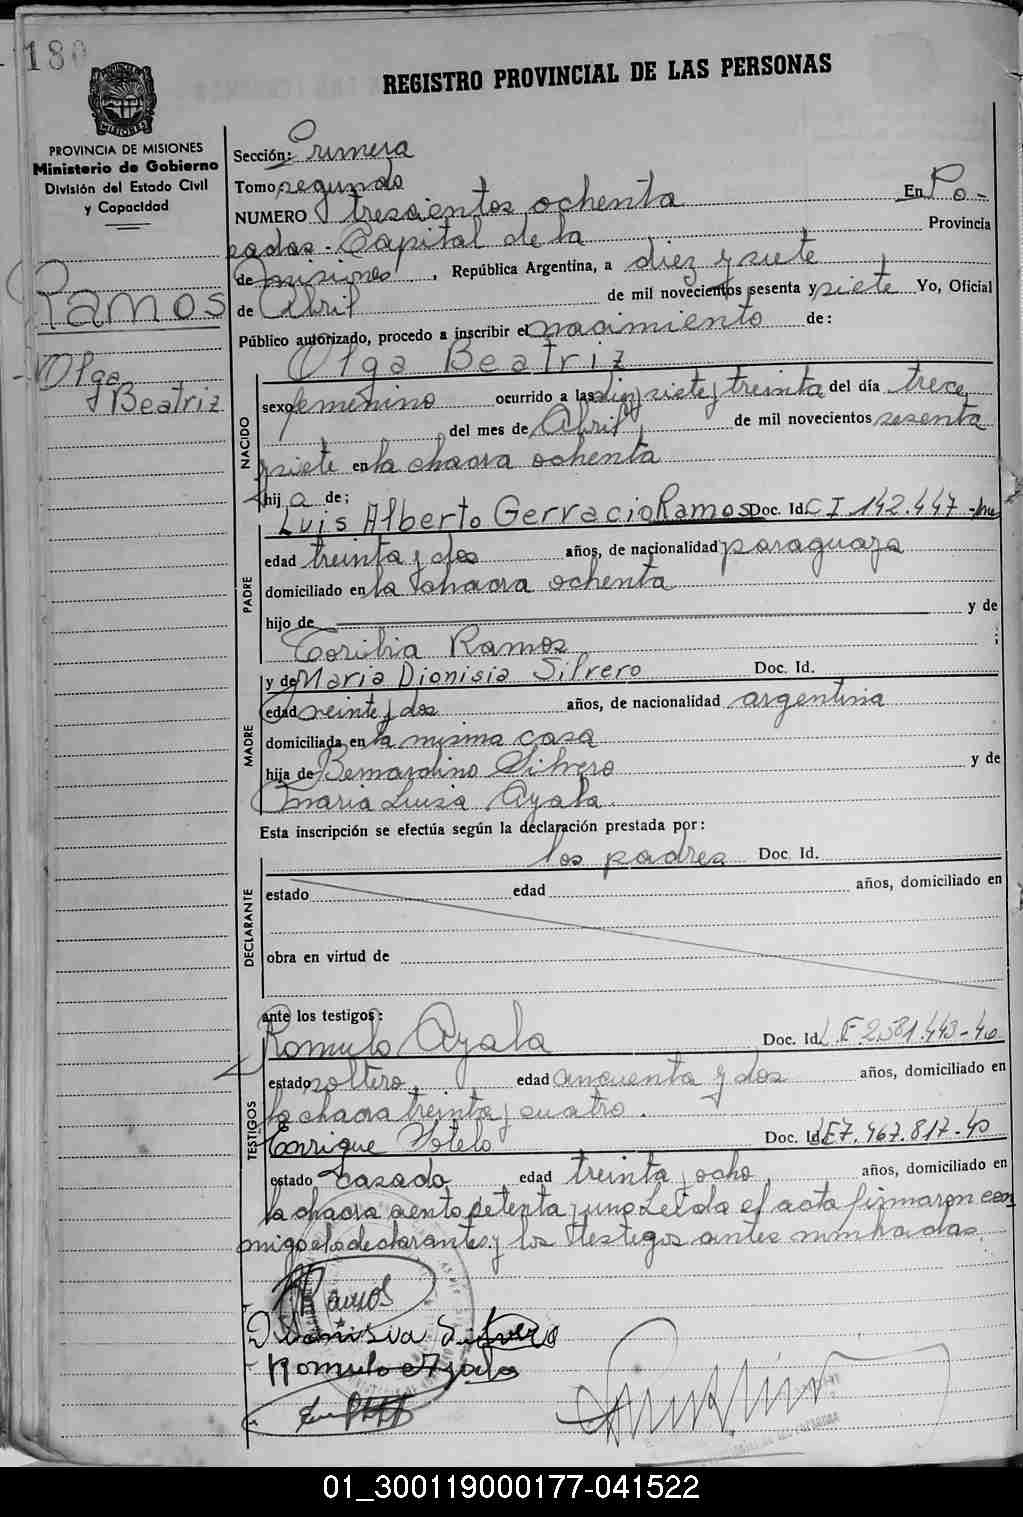 180
REGISTRO PROVINCIAL DE LAS PERSONAS
PROVINCIA DE MISIONES
Ministerio de Gobierno
División del Estado Civil
y Capacidad
Ramos
Olga
Beatriz
Sección: Primera
Tomo: segundo
NUMERO trescientos ochenta En Po-
sadas - Capital de la Provincia
de Misiones, República Argentina, a diez y siete
de Abril de mil novecientos sesenta y siete Yo, Oficial
Público autorizado, procedo a inscribir el nacimiento de:
Olga Beatriz
NACIDO
sexo femenino ocurrido a las diez y siete y treinta del día trece
del mes de Abril, de mil novecientos sesenta
y siete en la chacra ochenta
hija de:
Luis Alberto Gervacio Ramos Doc. Id. C I 142.447
PADRE
edad treinta y dos años, de nacionalidad paraguaya
domiciliado en la chacra ochenta
hijo de y de
Toribia Ramos ;
y de Maria Dionisia Silvero Doc. Id.
MADRE
edad veinte y dos años, de nacionalidad argentina
domiciliada en la misma casa
hija de Bernardino Silvero y de
Maria Luisa Ayala.
Esta inscripción se efectúa según la declaración prestada por:
los padres Doc. Id.
DECLARANTE
estado edad años, domiciliado en
obra en virtud de
ante los testigos:
Romulo Ayala Doc. Id. L.E 2.581.443-40
TESTIGOS
estado soltero, edad cincuenta y dos años, domiciliado en
la chacra treinta y cuatro.
Enrique Sotelo Doc. Id. LE 7.467.817-40
estado casado edad treinta y ocho, años, domiciliado en
la chacra ciento setenta y uno Leida el acta firmaron con
migo los declarantes y los testigos antes nombrados.
Ramos
Dionisia Silvero
Romulo Ayala
01_300119000177-041522